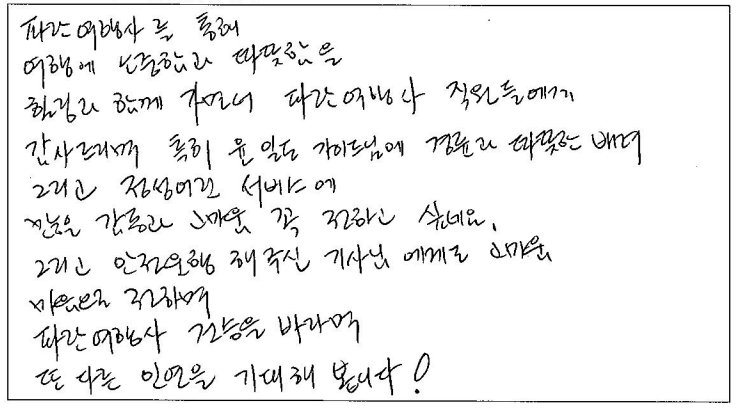 파란여행사를 통해
여행에 소중함과 따뜻함을
힐링과 함께 가면서 파란여행사 직원들에게
감사드리며 특히 윤일도 가이드님에 경륜과 따뜻한 배려
그리고 정성어린 서비스에
감동과 고마움 꼭 전하고 싶네요.
그리고 안전운행 해주신 기사님에게도 고마운
마음으로 전하며
파란여행사 건승을 바라며
또 다른 인연을 기대해 봅니다!